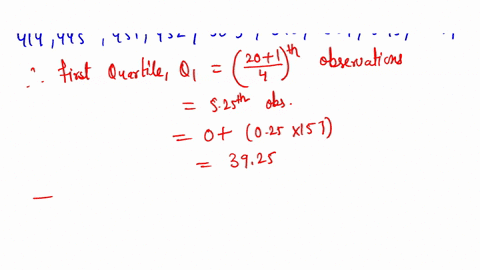 ∴ first Quartile, Q₁ = (20+1/4)ᵗʰ observations
= 5.25ᵗʰ obs.
= 0 + (0.25 × 157)
= 39.25